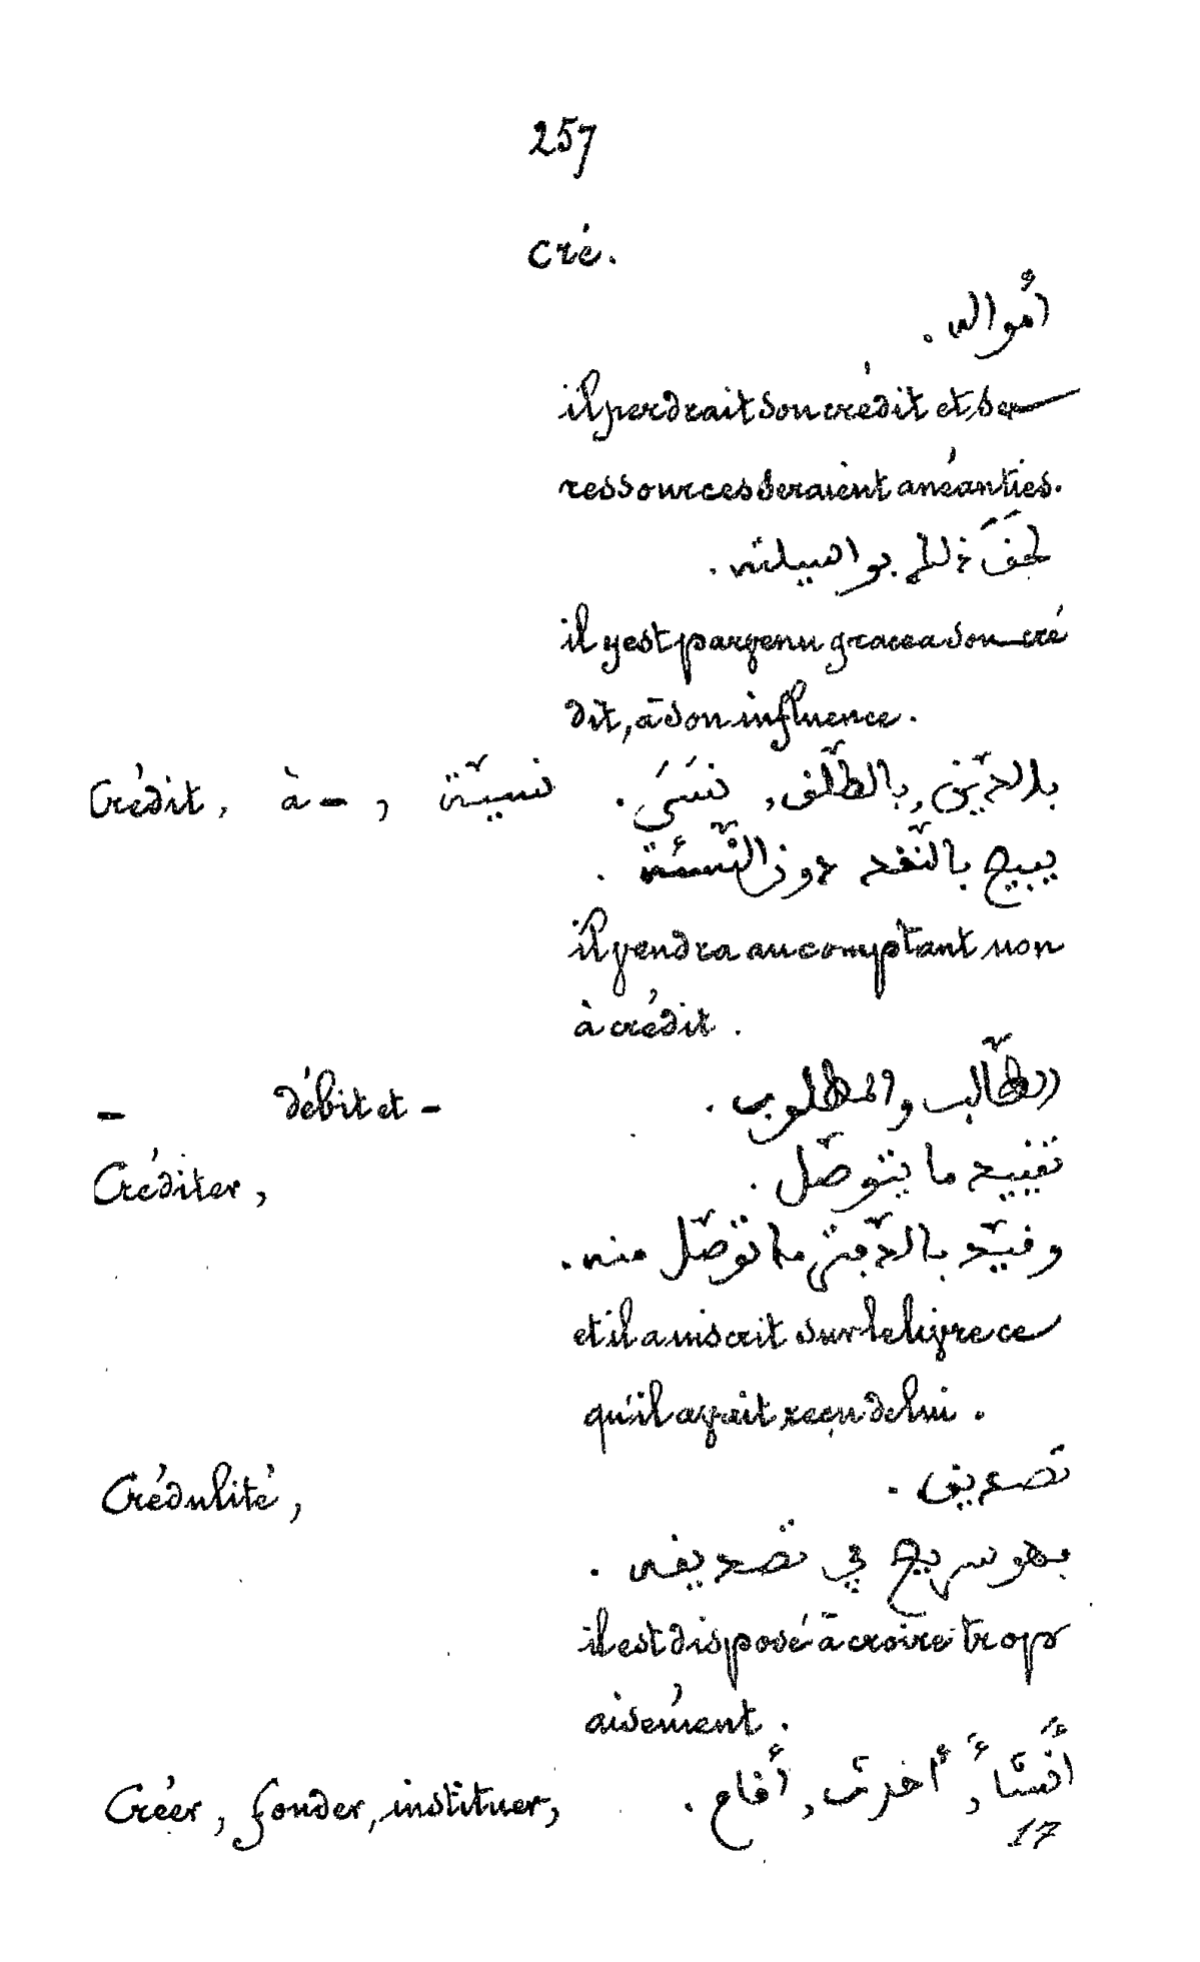 257
Cré.
أمواله.
il perdrait son crédit et ses
ressources seraient anéanties.
لحق ذلك بواسيلته.
il y est parvenu grace a son cré
dit, à son influence.
Crédit, à –, نسيّة بالدّين, بالطّلق, نسَىَ.
يبيع بالنّقد دون النّسئة.
il vendra au comptant non
à crédit.
– débit et – الطّالب والمطلوب.
Créditer, تقييد ما يتوصّل.
وقيّد بالدّفتر ما توصّل منه.
et il a inscrit sur le livre ce
qu'il avait reçu de lui.
Crédulité, تصديق.
فهو سريع في تصديقه.
il est disposé à croire trop
aisément.
Créer, fonder, instituer, أنشأ, أحدث, أقام.
17